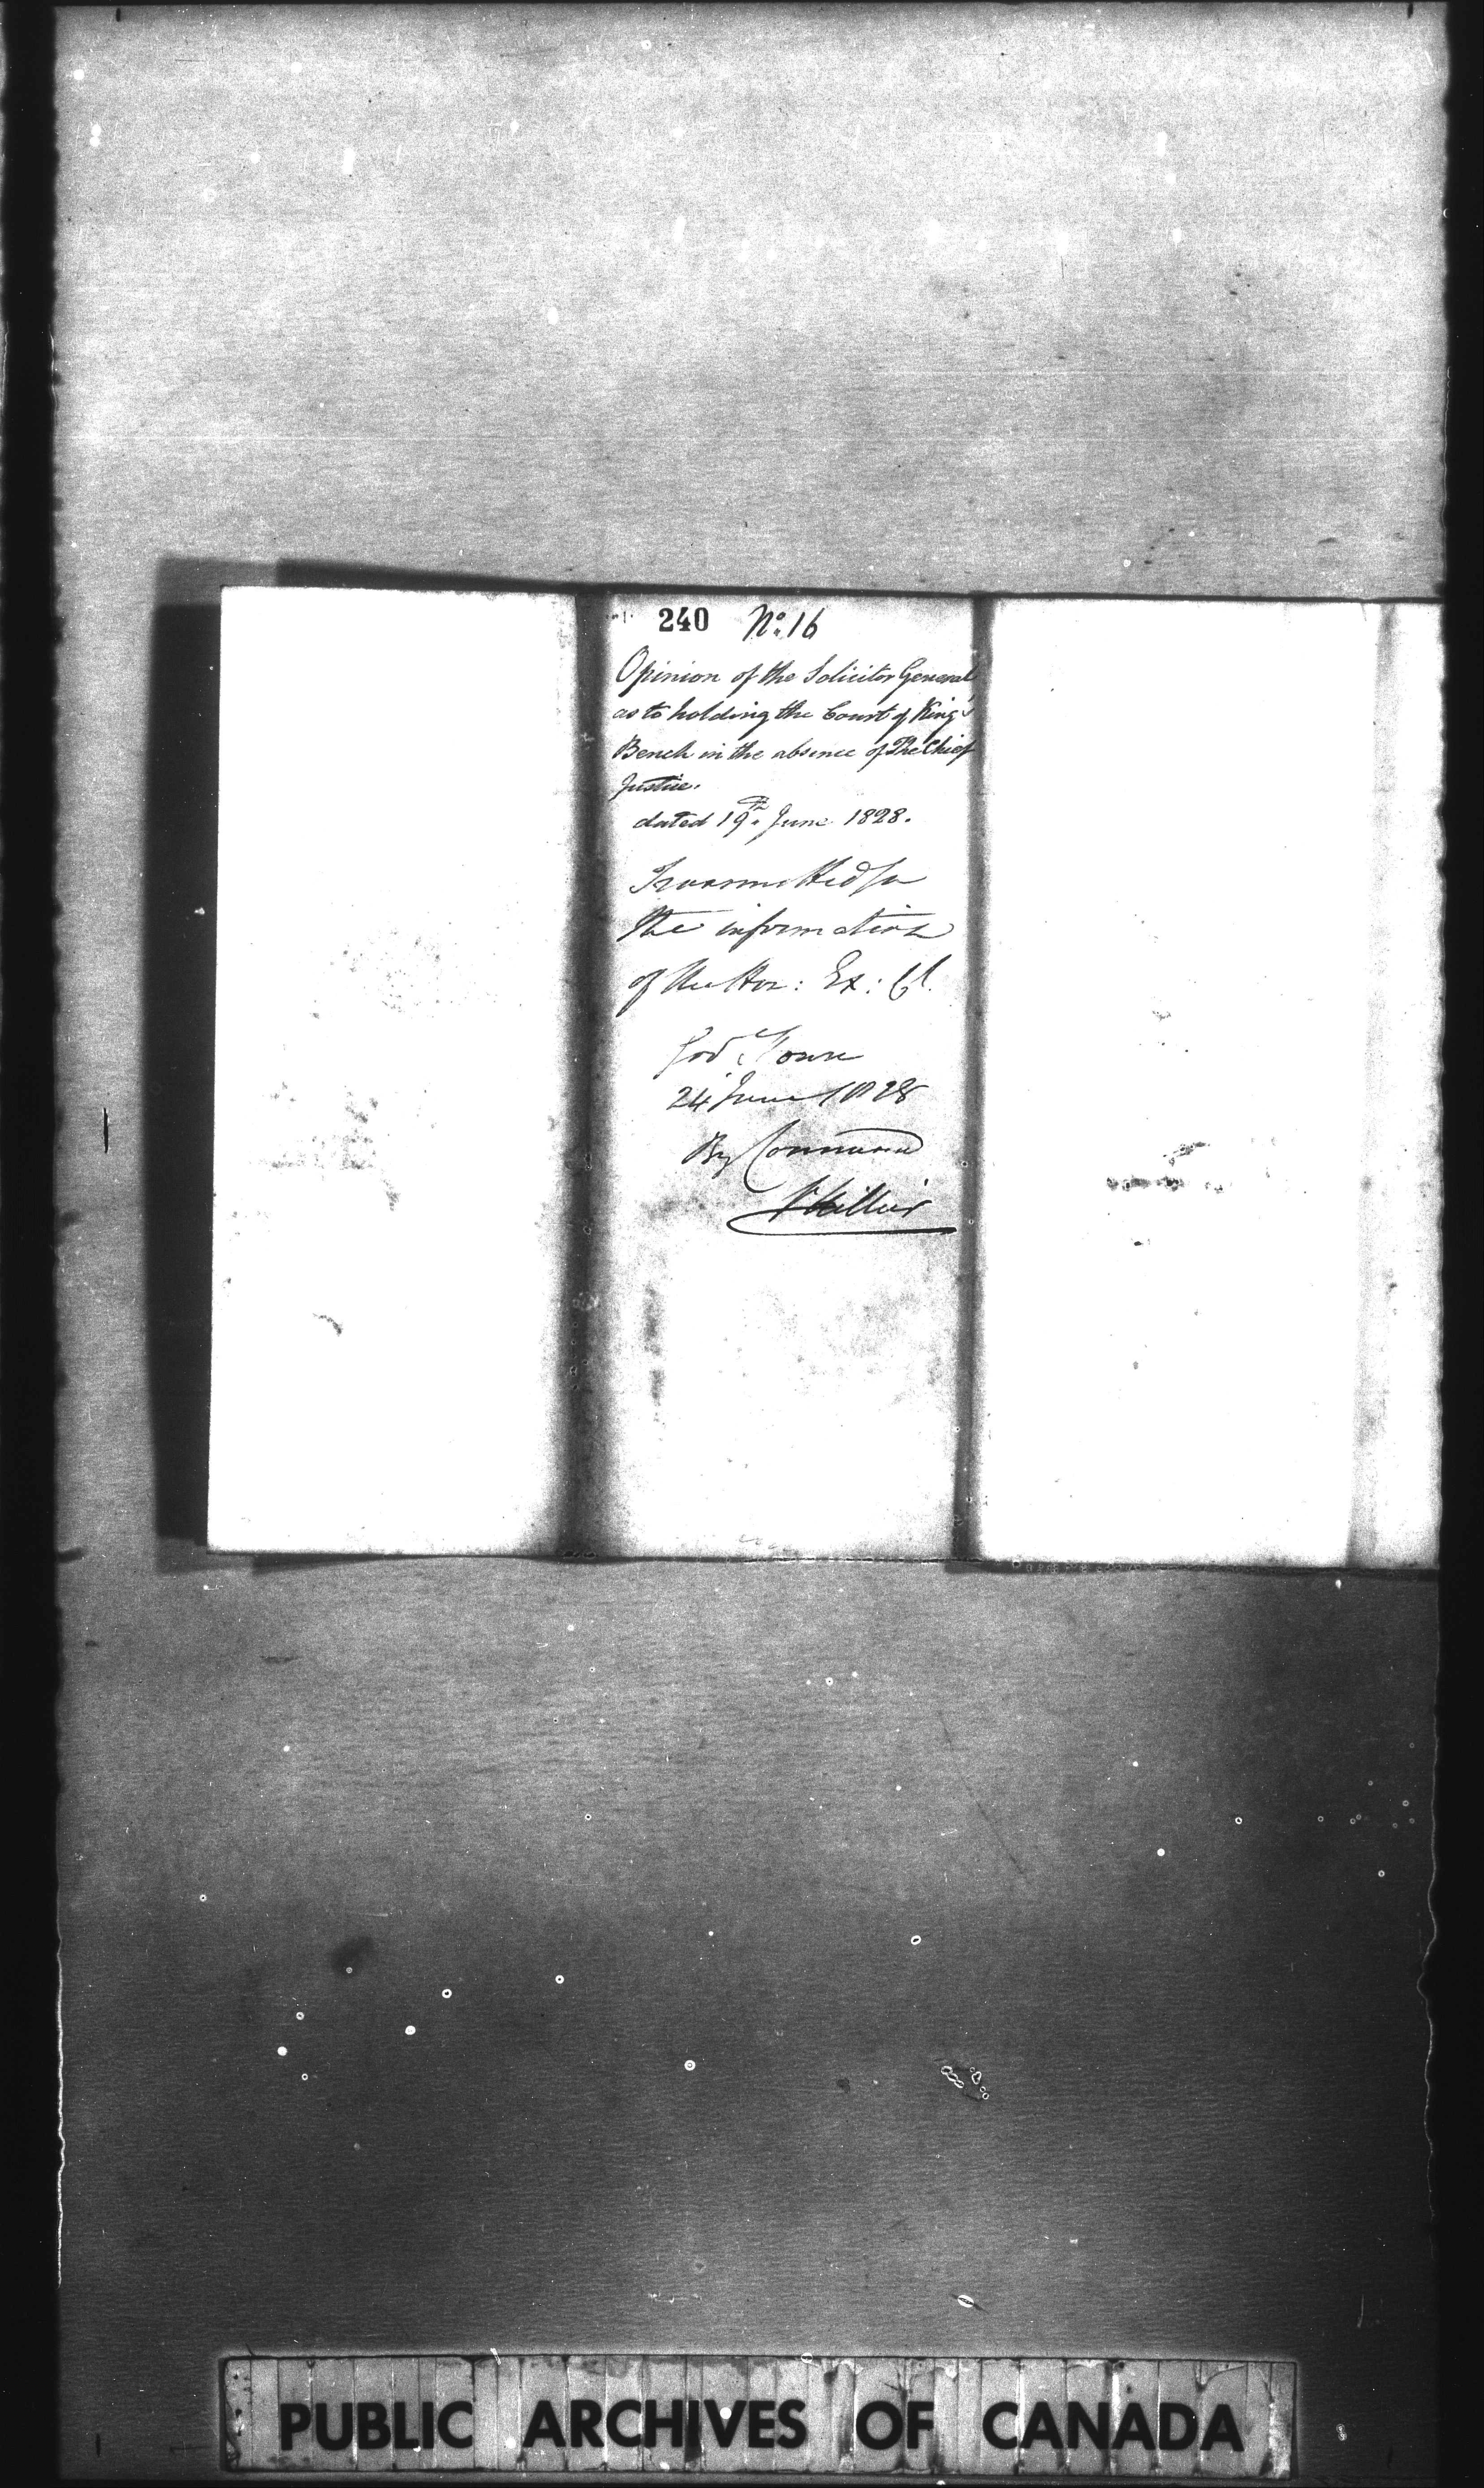 240 No. 16
Opinion of the Solicitor General
as to holding the Court of King's
Bench in the absence of The Chief
Justice.
dated 19th. June 1828.
Transmitted for
the information
of the Hon: Ex: Cl.
Gov. House
24 June 1828
By Command
Hillier
PUBLIC ARCHIVES OF CANADA